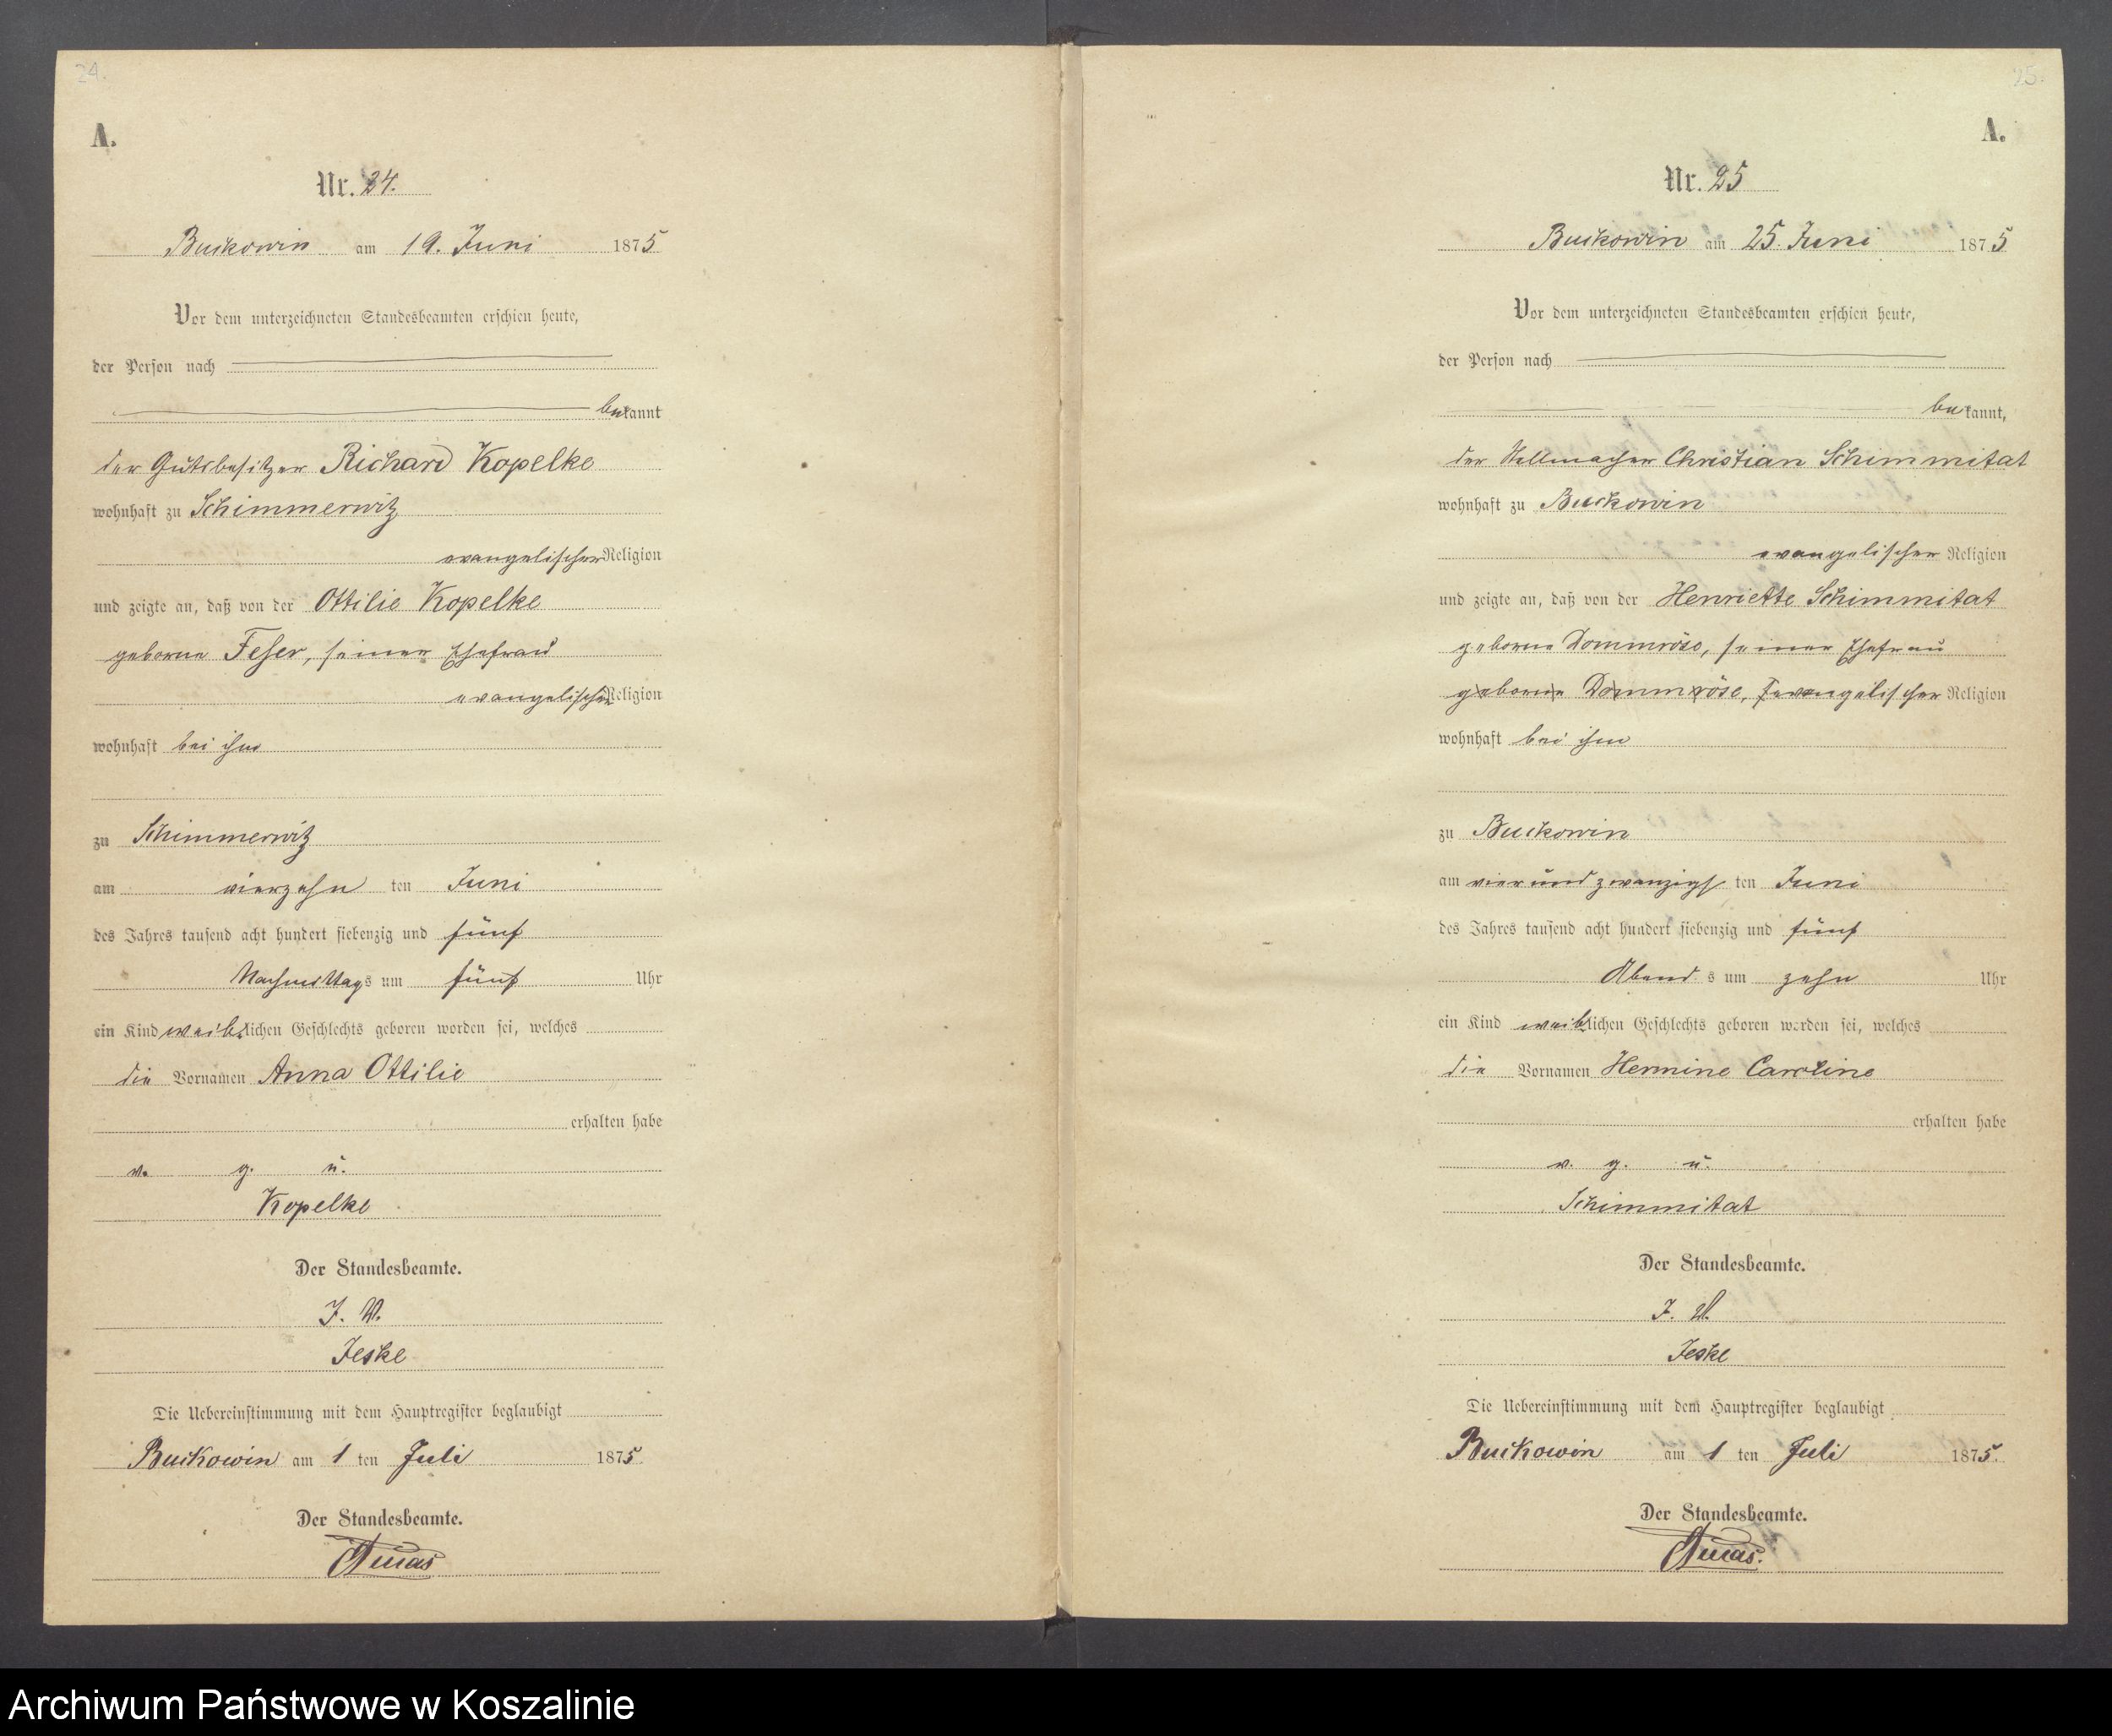 24.
A.
Nr. 24.
Buckowin am 19. Juni 1875
Vor dem unterzeichneten Standesbeamten erschien heute,
der Person nach
bekannt
der Gutsbesitzer Richard Kopelke
wohnhaft zu Schimmerwitz
evangelischer Religion
und zeigte an, daß von der Ottilie Kopelke
geborne Feser, seiner Ehefrau
evangelischer Religion
wohnhaft bei ihm
zu Schimmerwitz
am vierzehn ten Juni
des Jahres tausend acht hundert siebenzig und fünf
Nachmittags um fünf Uhr
ein Kind weiblichen Geschlechts geboren worden sei, welches
die Vornamen Anna Ottilie
erhalten habe
v. g. u.
Kopelke
Der Standesbeamte.
J. V.
Jeske
Die Uebereinstimmung mit dem Hauptregister beglaubigt
Buckowin am 1 ten Juli 1875.
Der Standesbeamte.
25.
A.
Nr. 25
Buckowin am 25. Juni 1875
Vor dem unterzeichneten Standesbeamten erschien heute,
der Person nach
bekannt,
der Stellmacher Christian Schimmitat
wohnhaft zu Buckowin
evangelischer Religion
und zeigte an, daß von der Henriette Schimmitat
geborne Dommröse, seiner Ehefrau
geborne Dommröse, evangelischer Religion
wohnhaft bei ihm
zu Buckowin
am vier und zwanzigs ten Juni
des Jahres tausend acht hundert siebenzig und fünf
Abends um zehn Uhr
ein Kind weiblichen Geschlechts geboren worden sei, welches
die Vornamen Hermine Caroline
erhalten habe
v. g. u.
Schimmitat
Der Standesbeamte.
J. V.
Jeske
Die Uebereinstimmung mit dem Hauptregister beglaubigt
Buckowin am 1 ten Juli 1875.
Der Standesbeamte.
Archiwum Państwowe w Koszalinie